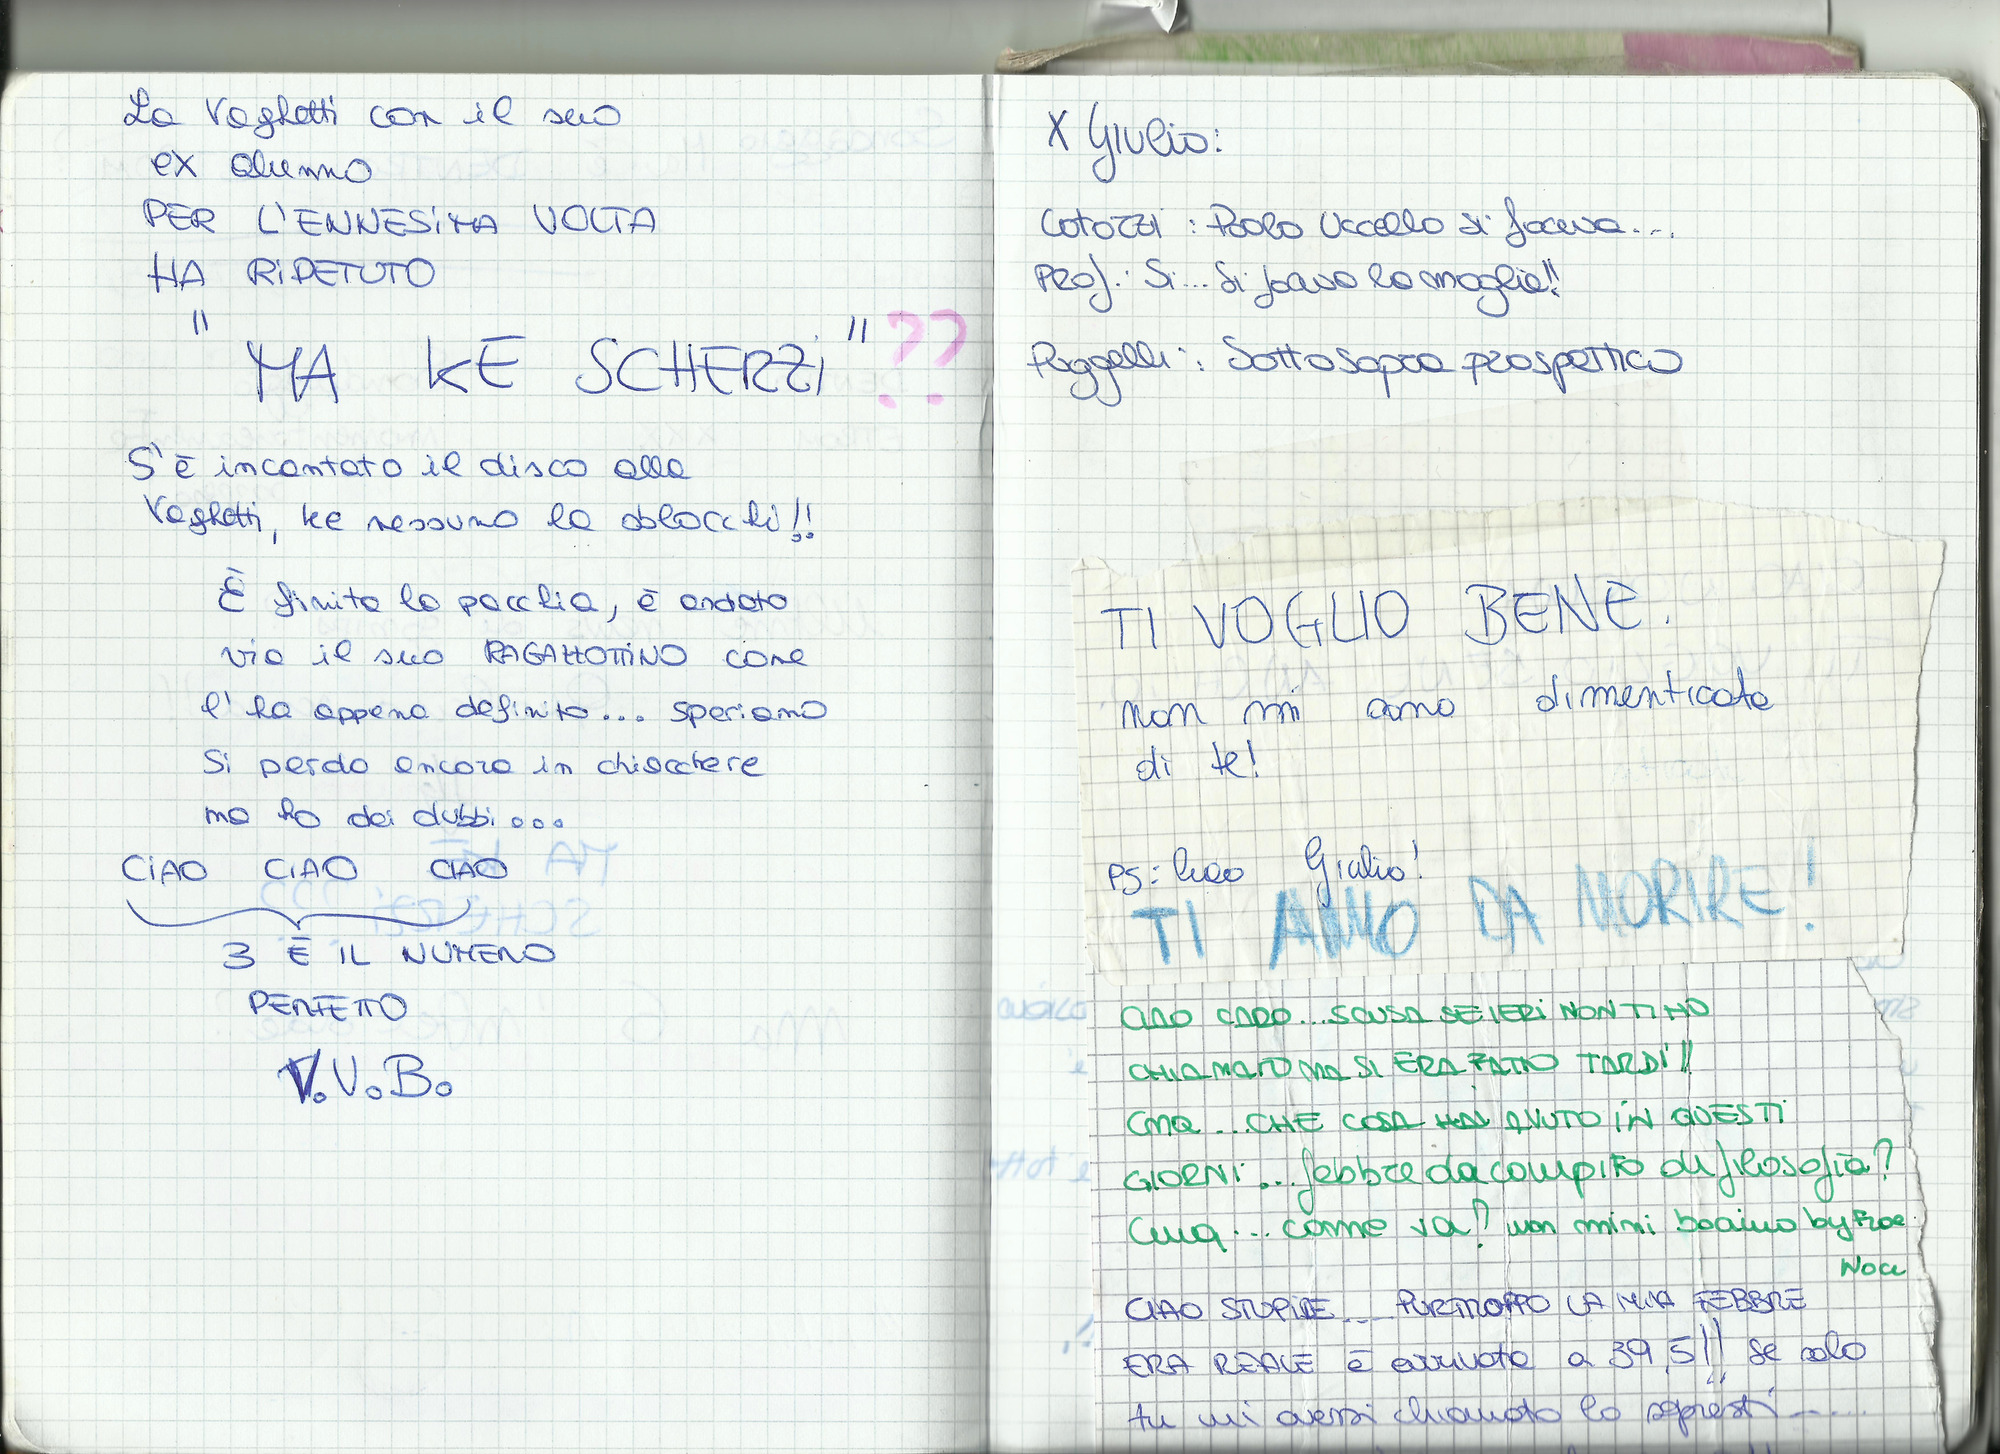 La Vaghetti con il suo
ex alunno
PER L'ENNESIMA VOLTA
HA RIPETUTO
"MA KE SCHERZI"??
S'è incantato il disco alla
Vaghetti, ke nessuno la sblocchi!!
È finita la pacchia, è andato
via il suo RAGAZZOTTINO come
l'ha appena definito... speriamo
si perda ancora in chiacchere
ma ho dei dubbi...
CIAO CIAO CIAO
3 È IL NUMERO
PERFETTO
T.V.B.
X Giulio:
Cotozzi: Paolo Uccello si faceva....
Prof.: Si... si faceva la moglie!!
Poggelli: Sottosopra prospettico
TI VOGLIO BENE.
non mi sono dimenticata
di te!
PS: Giulio!
TI AMO DA MORIRE!
CIAO CARO...SCUSA SE IERI NON TI HO
CHIAMATO MA SI ERA FATTO TARDI!!
CMQ...CHE COSA HAI AVUTO IN QUESTI
GIORNI...febbre da compito di filosofia?
Cmq... come va? non mimi by
CIAO STUPIDE.... PURTROPPO LA MIA FEBBRE
ERA REALE è arrivata a 39,5!! se solo
tu mi avessi chiamato lo sapresti......